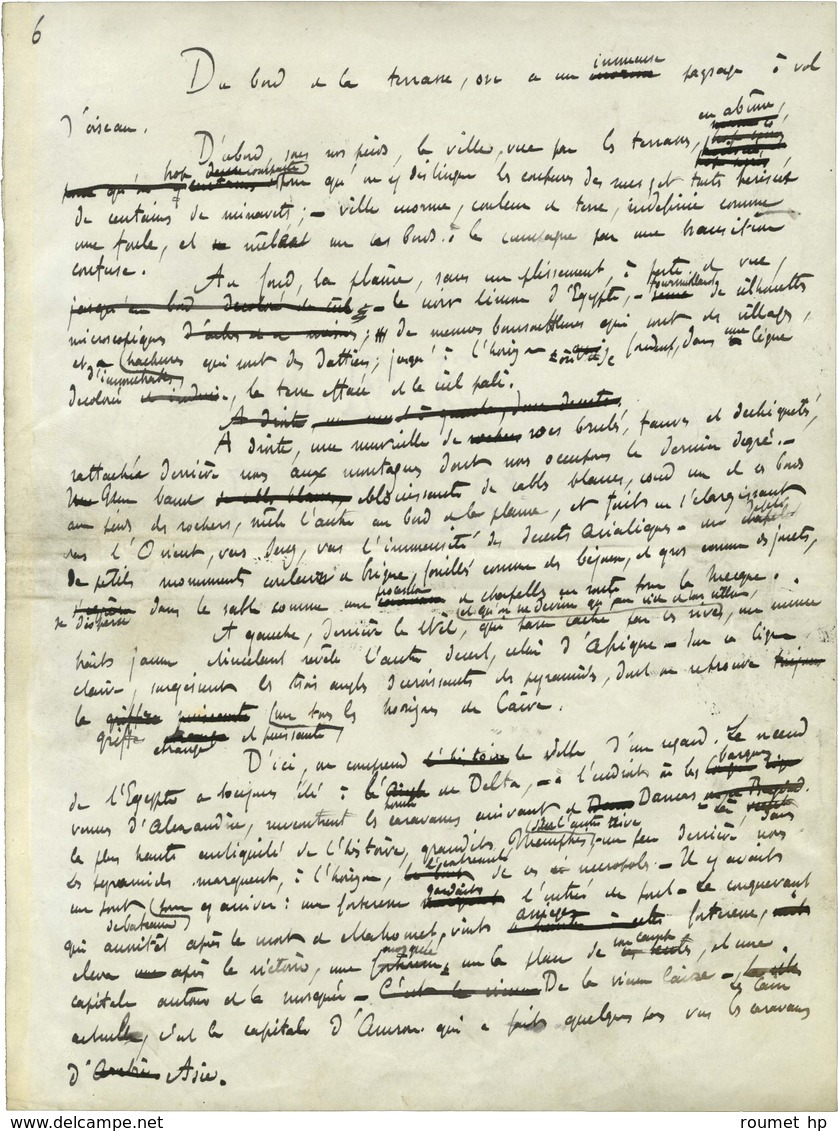 6
Du bord de la terrasse, on a un immense paysage à vol
d'oiseau.
D'abord sous nos pieds, la ville, vue par les terrasses, en abîme,
trop pour qu'on y distingue les coupures des rues, et toute hérissée
de centaines de minarets; – ville énorme, couleur de terre, indéfinie comme
une foule, et mêlant sur ses bords à la campagne par une transition
confuse.
Au fond, la plaine, sans un plissement, à perte de vue,
– le noir limon d'Egypte, – fourmillant de silhouettes
microscopiques; de menues boursouflures qui sont des villages,
et d'innombrables hachures qui sont des dattiers; jusqu'à l'horizon où se fondent, dans une ligne
décolorée, la terre effacée et le ciel pâli.
A droite, une muraille de rocs brulés, fauves et déchiquetés,
rattachée derrière nous aux montagnes dont nous occupons le dernier degré. –
Une bande éblouissante de sable blanc, court une de ses bords
au pied des rochers, l'autre au bord de la plaine, et fuit en s'élargissant
vers l'Orient, vers Suez, vers l'immensité des déserts asiatiques –
De petits monuments couleur de brique, fouillés comme des bijoux, et gros comme des jouets,
se dispersent dans le sable comme une procession de chapelles en route pour la Mecque.
A gauche, derrière le Nil, qui passe caché par ses rives, et qu'on ne devine qu'au vide de son sillon, un mince
trait jaune étincelant révèle l'autre désert, celui d'Afrique – Sur ce ligne
claire, surgissent les trois angles décroissants des pyramides, dont on retrouve
la griffe étrange et puissante sur tous les horizons du Caire.
D'ici, on comprend la ville d'un regard. Le nœud
de l'Egypte a toujours été à la pointe du Delta, – à l'endroit où les barques
venues d'Alexandrie, rencontrent les caravanes arrivant de Damas –
la plus haute antiquité de l'histoire, grandit Memphis, sur l'autre rive – un peu derrière nous
les pyramides marquent, à l'horizon, l'extrémité de ses nécropoles – Il y avait
un pont de bateaux pour y arriver: une forteresse gardait l'entrée du pont – Le conquérant
qui aussitôt après la mort de Mahomet, vint assiéger cette forteresse,
éleva après la victoire, une mosquée, sur la place de son camp, et une
capitale autour de la mosquée – De là le vieux Caire – le Caire
actuelle, c'est la capitale d'Amrou qui a fait quelques pas vers les caravanes
d'Asie.
roumet hp